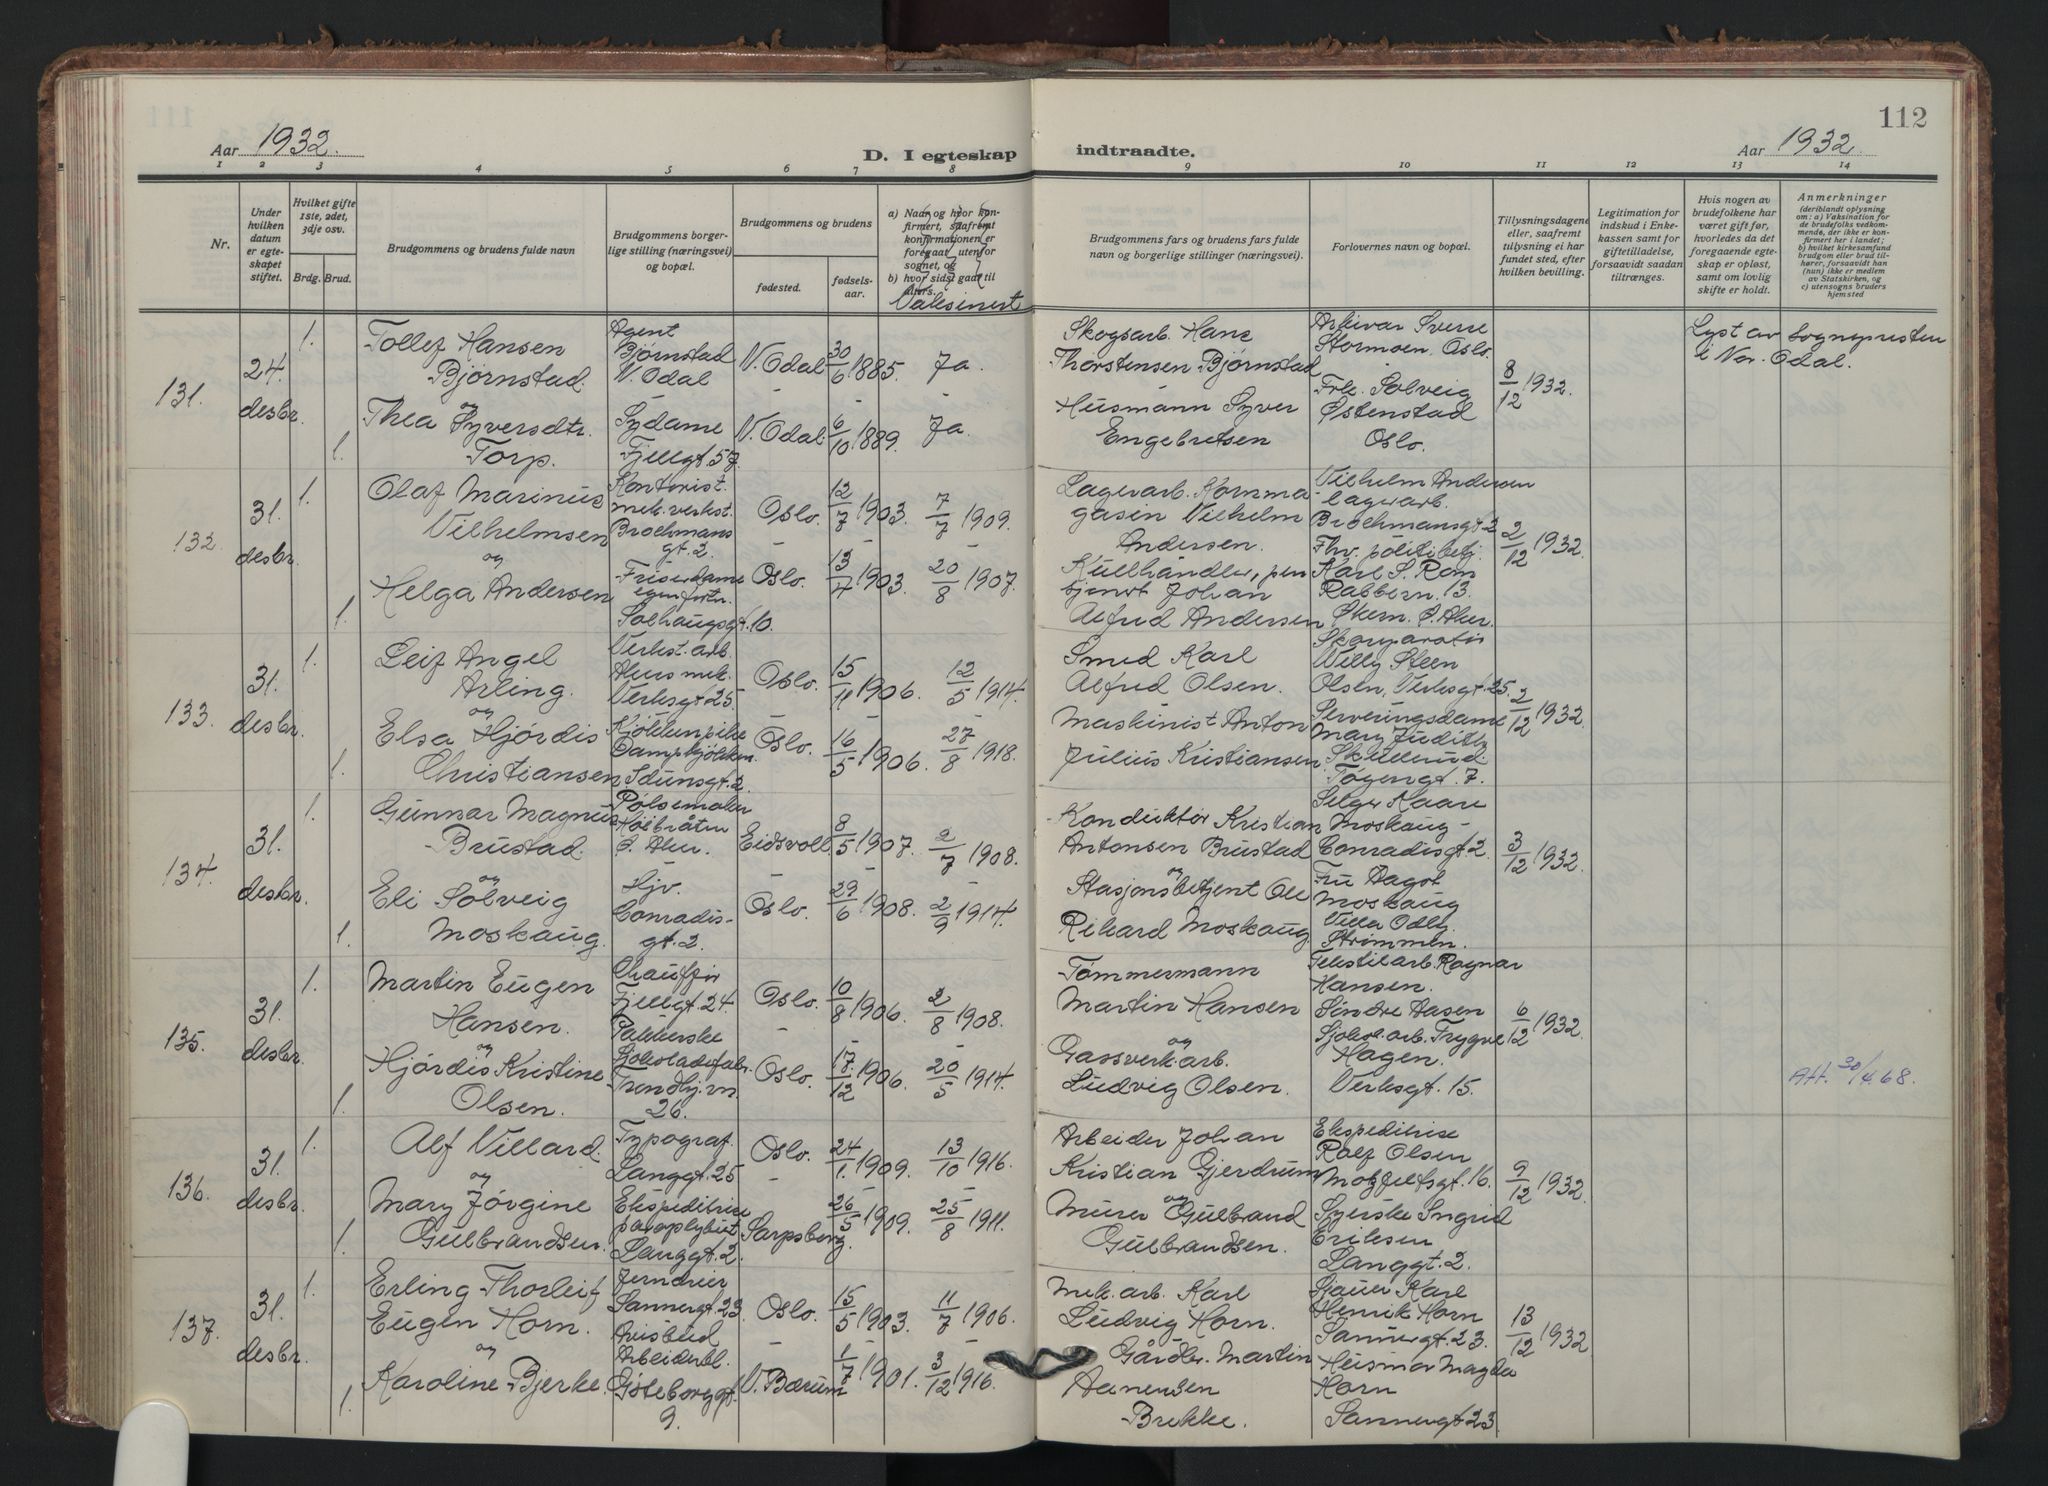 112
Aar 1932.
D. I egteskap
indtraadte.
Aar 1932.
1 2 3 4 5 6 7 8 9 10 11 12 13 14
Nr.
Under hvilken datum er egteskapet stiftet.
Hvilket gifte 1ste, 2det, 3dje osv.
Brdg. Brud.
Brudgommens og brudens fulde navn
Brudgommens borgerlige stilling (næringsvei) og bopæl.
Brudgommens og brudens
fødested.
fødselsaar.
a) Naar og hvor konfirmert, saafremt konfirmationen er foregaat utenfor sognet, og
b) hvor sidst gaat til alters.
Vaksinert
Brudgommens fars og brudens fars fulde navn og borgerlige stillinger (næringsvei).
Forlovernes navn og bopæl.
Tillysningsdagene eller, saafremt tillysning ei har fundet sted, efter hvilken bevilling.
Legitimation for indskud i Enkekassen samt for giftetilladelse, forsaavidt saadan tiltrænges.
Hvis nogen av brudefolkene har været gift før, hvorledes da det foregaaende egteskap er opløst, samt om lovlig skifte er holdt.
Anmerkninger
(deriblandt oplysning om: a) Vaksination for de brudefolks vedkommende, der ikke er konfirmert her i landet; b) hvilket kirkesamfund brudgom eller brud tilhører, forsaavidt han (hun) ikke er medlem av Statskirken, og c) utensogns bruders hjemsted
131.
24. desbr.
1.
Tollef Hansen
Bjørnstad.
og
1.
Thea Syversdtr.
Torp.
Agent
Bjørnstad
N. Odal
Sydame
Fjellgt. 57.
N. Odal 30/6 1885. Ja.
N. Odal 6/10 1889. Ja.
Skogsarb. Hans
Thorstensen Bjørnstad
Husmann Syver
Engebretsen
Arkivar Sverre
Stormoen, Oslo.
Frk. Solveig
Østenstad
Oslo.
8/12 1932.
Lyst av sognepresten
i Nor. Odal.
132.
31. desbr.
1.
Olaf Marinus
Vilhelmsen
og
1.
Helga Andersen
Kontorist.
mek. verkst.
Brochmans
gt. 2.
Friserdame
egen forretn.
Solhaugsgt. 10.
Oslo. 12/7 1903. 7/7 1909.
Oslo. 13/4 1903. 20/8 1907.
Lagerarb. Kornma-
gasin Vilhelm
Andersen.
Kullhandler, pen
sjonert Johan
Alfred Andersen
Vilhelm Andersen
lagerarb.
Brochmansgt. 2
Fhv. politibetj.
Karl S. Rom
Rabbern. 13.
Økern. Ø. Aker.
2/12 1932.
133.
31. desbr.
1.
Leif Angel
Arling.
og
1.
Elsa Hjørdis
Christiansen
Verkst. arb.
Akers mek.
Verksgt. 25
Kjøkkenpike
Dampkjøkken.
Idunsgt. 2.
Oslo. 15/11 1906. 12/5 1914.
Oslo. 16/5 1906. 27/8 1918.
Smed Karl
Alfred Olsen.
Maskinist Anton
Julius Kristiansen
Skoreparatør
Willy Steen
Olsen, Verksgt. 25.
Serveringsdame
Mary Judith
Skullerud
Tøyengt. 7.
2/12 1932.
134.
31. desbr.
1.
Gunnar Magnus
Brustad.
og
1.
Eli Solveig
Moskaug.
Pølsemaker
Høibråten
Ø. Aker.
Hjv.
Conradis-
gt. 2.
Eidsvoll. 8/5 1907. 2/7 1908.
Oslo. 29/6 1908. 2/9 1914.
Konduktør Kristian
Antonsen Brustad
og
Stasjonsbetjent Ole
Rikard Moskaug
Selger Kaare
Moskaug
Conradisgt. 2.
Fru Dagot
Moskaug
Villa Odly
Strømmen.
3/12 1932.
135.
31. desbr.
1.
Martin Eugen
Hansen.
og
1.
Hjørdis Kristine
Olsen.
Chauffør
Fjellgt. 24
Pakkerske
Sjokoladefabr.
Trondhj. vn.
26.
Oslo. 10/8 1906. 2/8 1908.
Oslo. 17/12 1906. 20/5 1914.
Tømmermann
Martin Hansen
og
Gassverk. arb.
Ludvig Olsen.
Tekstilarb. Ragnar
Hansen.
Søndre Aasen
Sjokol. arb. Trygve
Hagen.
Verksgt. 15.
6/12 1932.
Att. 30/4 68.
136.
31. desbr.
1.
Alf Villard.
og
1.
Mary Jørgine
Gulbrandsen.
Typograf.
Langgt. 25
Ekspeditrise
Langgt. 2.
Oslo. 24/1. 1909. 13/10 1916.
Sarpsborg. 26/5 1909. 25/8 1911.
Arbeider Johan
Kristian Gjerdrum
og
Murer Gulbrand
Gulbrandsen.
Ekspeditrise
Rolf Olsen
Motzfeltsgt. 16.
Syerske Ingrid
Eriksen
Langgt. 2.
9/12 1932.
137.
31. desbr.
1.
Erling Thorleif
Eugen Horn.
og
1.
Karoline Bjerke.
Jerndreier
Sannergt. 23.
Avisbud
Arbeiderbl.
Göteborggt.
9.
Oslo. 15/5 1903. 11/7 1906.
V. Bærum 1/7 1901. 3/12 1916.
Mek. arb. Karl
Ludvig Horn.
Gårdbr. Martin
Aanensen
Brekke.
Sjauer Karl
Henrik Horn
Sannergt. 23.
Husmor Magda
Horn
Sannergt 23
13/12 1932.